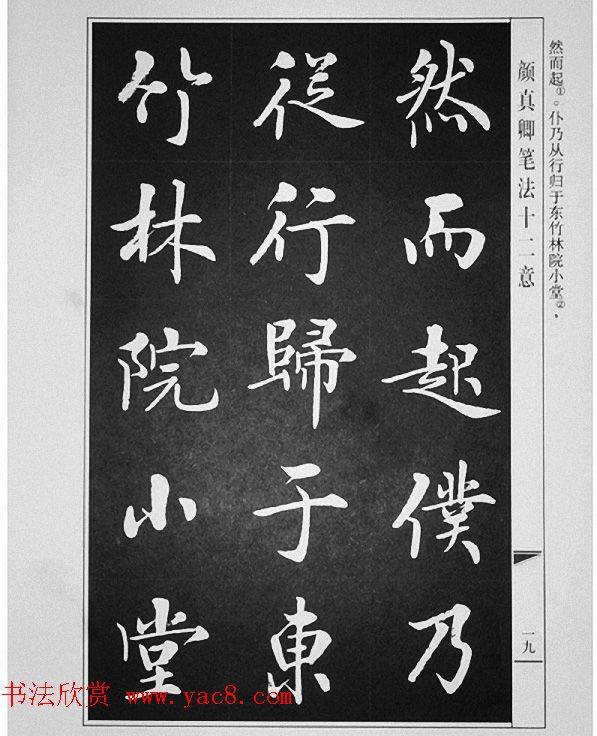 然而起①。仆乃从行归于东竹林院小堂②,
颜真卿笔法十二意
一九
然而起僕乃
從行歸于東
竹林院小堂
书法欣赏 www.yac8.com